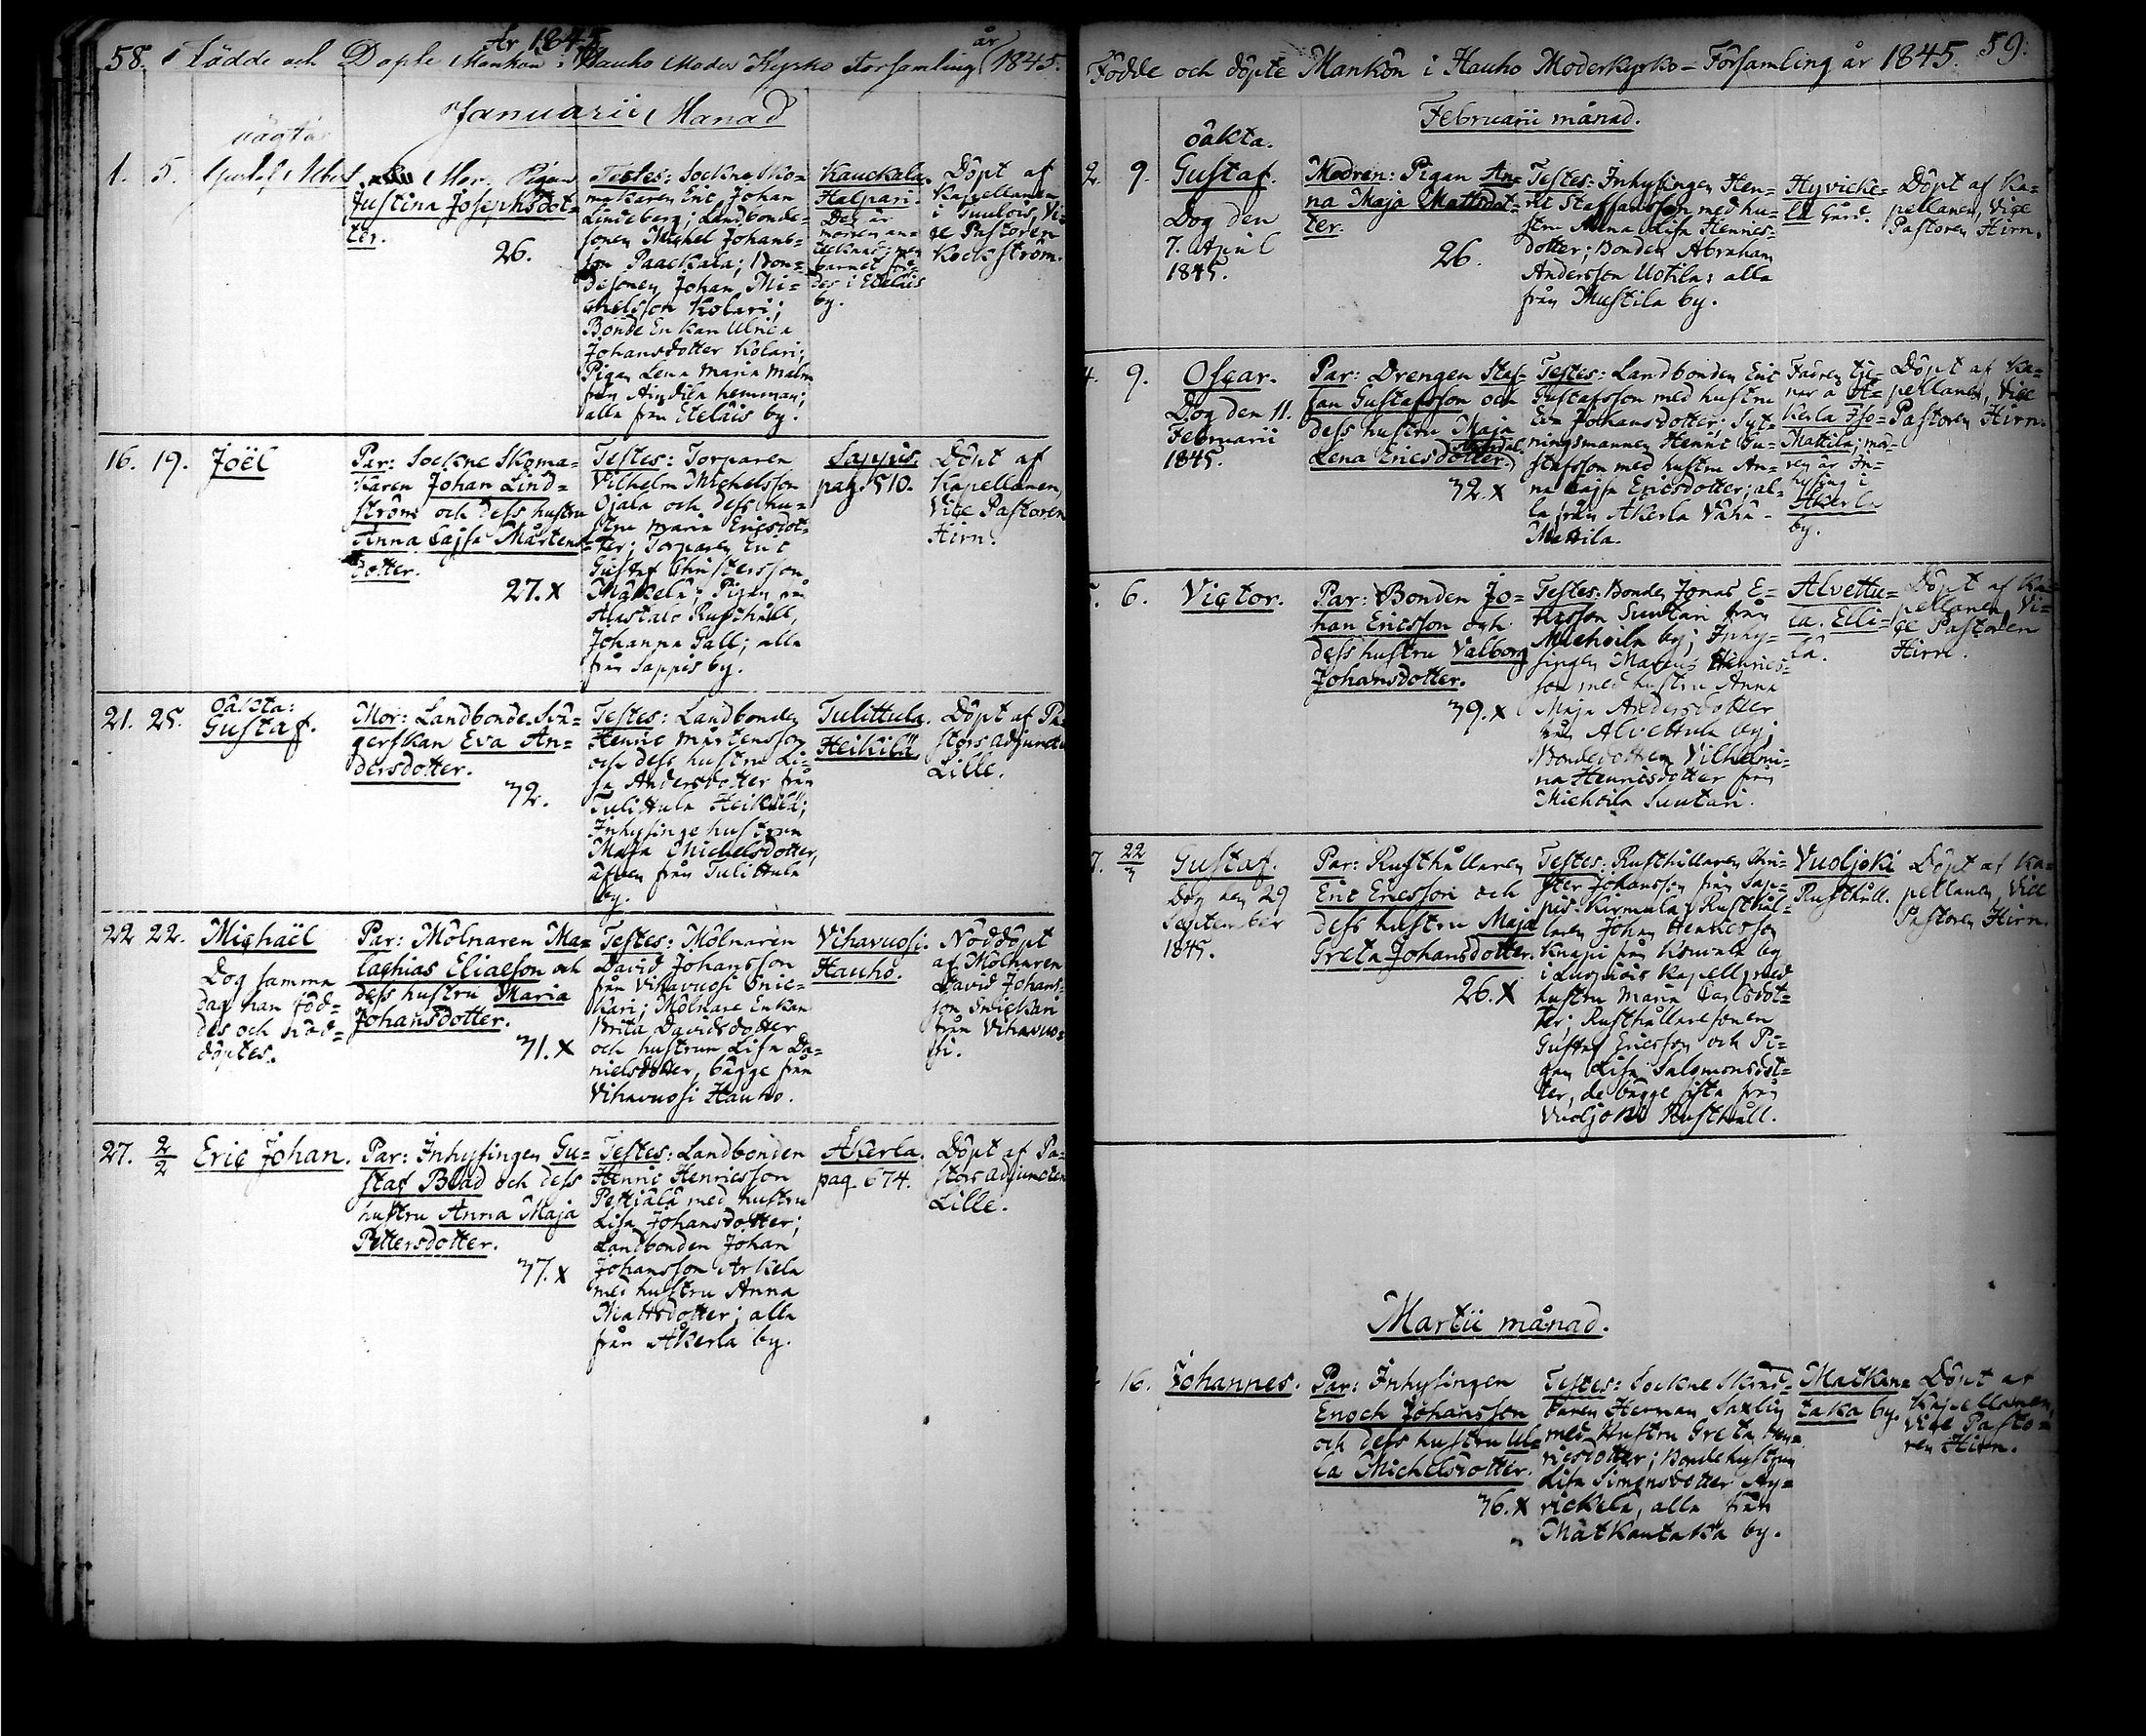 År 1845
58. Födde och Döpte Mankön i Hauho Moder Kyrko Församling år 1845.
Januarii Månad
oägta
1. 5. Gustaf Albert
Mor: Pigan
Justina Josephsdot=
ter.
26.
Testes: Sockne Sko=
makaren Eric Johan
Lindeberg; Landbonde=
sonen Michel Johans=
son Paackala; Bon=
desonen Johan Mi=
chelsson Kolari;
Bonde Enkan Ulrica
Johansdotter Kolari;
Pigan Lena Maria Malm
från hemman;
alla från Eteläis by.
Kauckala.
Halpari.
Der är
modren an=
tecknad; men
barnet föd=
des i Eteläis
by.
Döpt af
Kapellanen
i Tuulois, Vi=
ce Pastoren
Kockström.
16. 19. Joël
Par: Sockne Skoma=
karen Johan Lind=
ström och dess hustru
Anna Cajsa Mårtens=
dotter.
27. x
Testes: Torparen
Vilhelm Michelsson
Ojala och dess hu=
stru Maria Ericsdot=
ter; Torparen Eric
Gustaf Christersson
Mäkelä; Pigan från
Alustalo Rusthåll,
Johanna Gall; alla
från Sappis by.
Sappis.
pag. 510.
Döpt af
Kapellanen,
Vice Pastoren
Hirn.
21. 25. oäkta:
Gustaf.
Mor: Landbonde Svä=
gerskan Eva An=
dersdotter.
32.
Testes: Landbonden
Henric Mårtensson
och dess hustru Li=
sa Andersdotter från
Tulittula Heikilä;
Inhysinge hustrun
Maja Michelsdotter,
äfven från Tulittula
by.
Tulittula.
Heikilä.
Döpt af Pa=
stors Adjuncten
Lille.
22 22. Michaël
Dog samma
dag han föd=
des och nöd=
döptes.
Par: Mölnaren Ma=
lachias Eliaeson och
dess hustru Maria
Johansdotter.
31. x
Testes: Mölnaren
David Johansson
från Vihavuosi Snic=
kari; Mölnare Enkan
Brita Davidsdotter
och hustrun Lisa Da=
nielsdotter, bägge från
Vihavuosi Hauho.
Vihavuosi.
Hauho.
Nöddöpt
af Mölnaren
David Johans=
son Snickari
från Vihavuo=
si.
27. 2/2 Eric Johan.
Par: Inhysingen Gu=
staf Blad och dess
hustru Anna Maja
Pettersdotter.
37. x
Testes: Landbonden
Henric Henricsson
Pettiälä med hustru
Lisa Johansdotter;
Landbonden Johan
Johansson Arkela
med hustru Anna
Mattsdotter; alla
från Åkerla by.
Åkerla.
pag. 674.
Döpt af Pa=
stors Adjuncten
Lille.
Födde och döpte Mankön i Hauho Moderkyrko=Församling år 1845. 59.
Februarii månad.
oäkta.
2. 9. Gustaf.
Dog den
7. April
1845.
Modren: Pigan An=
na Maja Mattsdot=
ter.
26.
Testes: Inhysingen Hen=
ric Staffansson med hu=
stru Anna Lisa Henrics=
dotter; Bonden Abraham
Andersson Uotila; alla
från Mustila by.
Hyvicke=
lä Gård.
Döpt af Ka=
pellanen, Vice
Pastoren Hirn.
4. 9. Oscar.
Dog den 11.
Februarii
1845.
Par: Drengen Stef=
fan Gustafsson och
dess hustru Maja
Lena Ericsdotter.
32. x
Testes: Landbonden Eric
Gustafsson med hustru
Eva Johansdotter; Syt=
ningsmannen Henric Gu=
stafsson med hustru An=
na Cajsa Ericsdotter; al=
la från Åkerla Vähä-
Mattila.
Fadren tje=
nar å Å=
kerla Iso=
Mattila; mod=
ren är In=
hysing i
Åkerla
by.
Döpt af Ka=
pellanen, Vice
Pastoren Hirn.
6. Victor.
Par: Bonden Jo=
han Ericsson och
dess hustru Valborg
Johansdotter.
39. x
Testes: Bonden Jonas E=
ricsson Suutari från
Michoila by; Inhy=
singen Matts Henrics=
son med hustru Anna
Maja Andersdotter
från Alvettula by;
Bondedottren Vilhelmi=
na Henricsdotter från
Michoila Suutari.
Alvettu=
la. Elli=
lä.
Döpt af Ka=
pellanen, Vi=
ce Pastoren
Hirn.
7. 22/3 Gustaf.
Dog den 29
September
1845.
Par: Rusthållaren
Eric Ericsson och
dess hustru Maja
Greta Johansdotter.
26. x
Testes: Rusthållaren Chri=
ster Johansson från Sap=
pis-Kirmula; Rusthål=
laren Johan Henricsson
Knapi från by
i Luopiois Kapell, med
hustru Maria Carlsdot=
ter; Rusthållaresonen
Gustaf Ericsson och Pi=
gan Lisa Salomonsdot=
ter, de bägge sista från
Vuoljoki Rusthåll.
Vuoljoki
Rusthåll.
Döpt af Ka=
pellanen, Vice
Pastoren Hirn.
Martii månad.
16. Johannes.
Par: Inhysingen
Enoch Johansson
och dess hustru Ul=
la Michelsdotter.
36. x
Testes: Sockne Skräd=
daren Herman Saxlin
med hustru Greta Hen=
ricsdotter; Bondehustrun
Lisa Simonsdotter Hy=
rickelä, alla från
Matkantaka by.
Matkan=
taka by.
Döpt af
Kapellanen,
Vice Pasto=
ren Hirn.